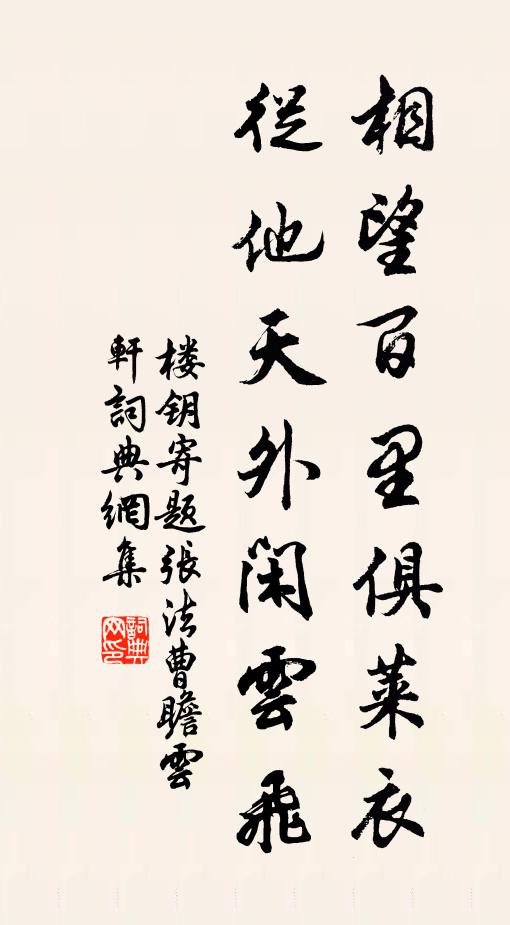 相望百里俱萊衣
從他天外閑雲飛
楼钥寄题張法曹瞻雲
軒詞典網集
詞典
网印